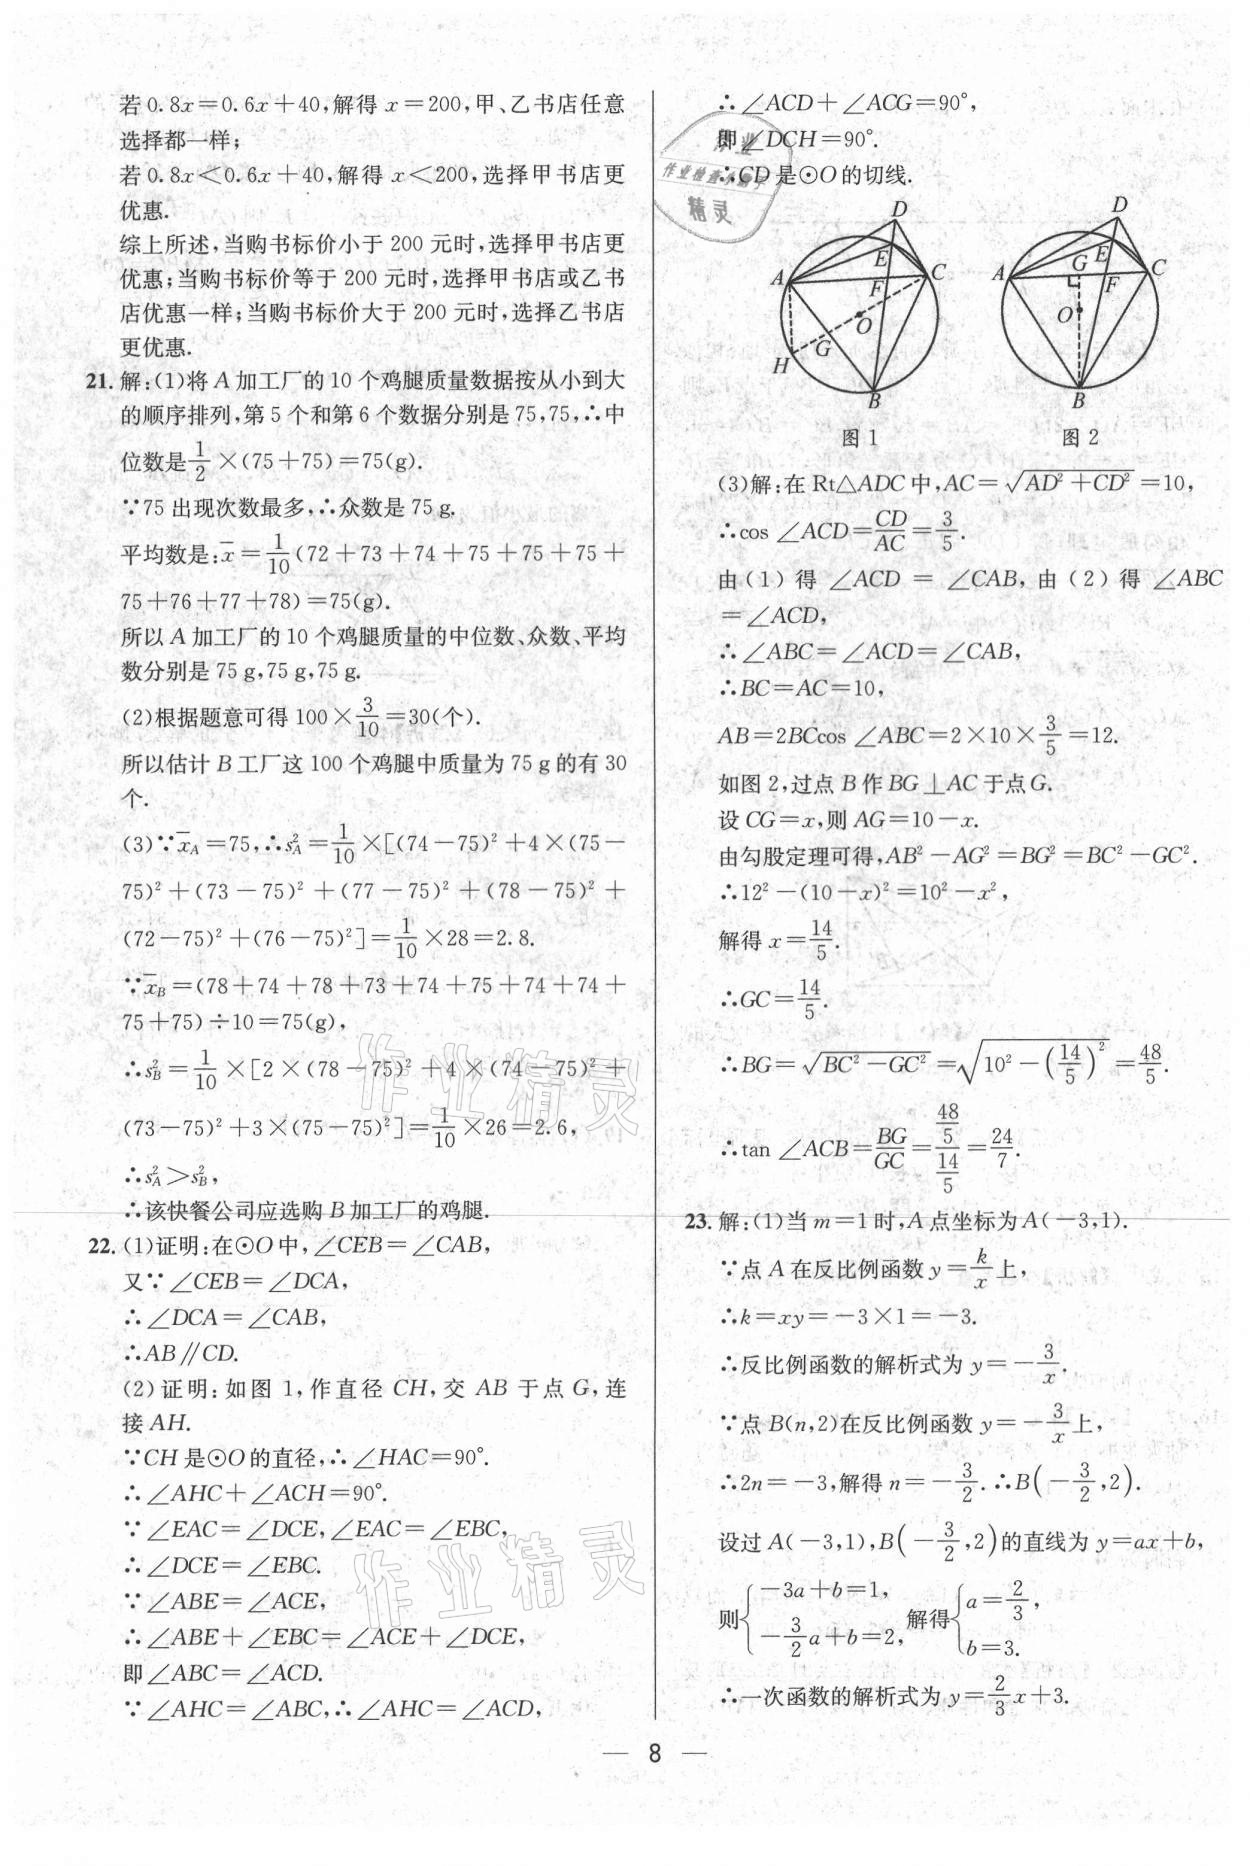 若 0.8x=0.6x+40,解得 x=200,甲、乙书店任意
选择都一样;
若 0.8x<0.6x+40,解得 x<200,选择甲书店更
优惠.
综上所述,当购书标价小于 200 元时,选择甲书店更
优惠;当购书标价等于 200 元时,选择甲书店或乙书
店优惠一样;当购书标价大于 200 元时,选择乙书店
更优惠.
21. 解:(1)将 A 加工厂的 10 个鸡腿质量数据按从小到大
的顺序排列,第 5 个和第 6 个数据分别是 75,75,∴中
位数是1/2×(75+75)=75(g).
∵75 出现次数最多,∴众数是 75 g.
平均数是:x̄=1/10(72+73+74+75+75+75+
75+76+77+78)=75(g).
所以 A 加工厂的 10 个鸡腿质量的中位数、众数、平均
数分别是 75 g,75 g,75 g.
(2)根据题意可得 100×3/10=30(个).
所以估计 B 工厂这 100 个鸡腿中质量为 75 g 的有 30
个.
(3)∵x̄_A=75,∴s²_A=1/10×[(74-75)²+4×(75-
75)²+(73-75)²+(77-75)²+(78-75)²+
(72-75)²+(76-75)²]=1/10×28=2.8.
∵x̄_B=(78+74+78+73+74+75+74+74+
75+75)÷10=75(g),
∴s²_B=1/10×[2×(78-75)²+4×(74-75)²+
(73-75)²+3×(75-75)²]=1/10×26=2.6,
∴s²_A>s²_B,
∴该快餐公司应选购 B 加工厂的鸡腿.
22. (1)证明:在⊙O 中,∠CEB=∠CAB,
又∵∠CEB=∠DCA,
∴∠DCA=∠CAB,
∴AB∥CD.
(2)证明:如图 1,作直径 CH,交 AB 于点 G,连
接 AH.
∵CH 是⊙O 的直径,∴∠HAC=90°.
∴∠AHC+∠ACH=90°.
∵∠EAC=∠DCE,∠EAC=∠EBC,
∴∠DCE=∠EBC.
∵∠ABE=∠ACE,
∴∠ABE+∠EBC=∠ACE+∠DCE,
即∠ABC=∠ACD.
∵∠AHC=∠ABC,∴∠AHC=∠ACD,
∴∠ACD+∠ACG=90°,
即∠DCH=90°.
∴CD 是⊙O 的切线.
D
A E C
F
O
H G
B
图 1
D
A G E C
F
O
B
图 2
(3)解:在 Rt△ADC 中,AC=√(AD²+CD²)=10,
∴cos ∠ACD=CD/AC=3/5.
由(1)得 ∠ACD = ∠CAB,由(2)得 ∠ABC
=∠ACD,
∴∠ABC=∠ACD=∠CAB,
∴BC=AC=10,
AB=2BCcos ∠ABC=2×10×3/5=12.
如图 2,过点 B 作 BG⊥AC 于点 G.
设 CG=x,则 AG=10-x.
由勾股定理可得,AB²-AG²=BG²=BC²-GC².
∴12²-(10-x)²=10²-x²,
解得 x=14/5.
∴GC=14/5.
∴BG=√(BC²-GC²)=√(10²-(14/5)²)=48/5.
∴tan ∠ACB=BG/GC=(48/5)/(14/5)=24/7.
23. 解:(1)当 m=1 时,A 点坐标为 A(-3,1).
∵点 A 在反比例函数 y=k/x上,
∴k=xy=-3×1=-3.
∴反比例函数的解析式为 y=-3/x.
∵点 B(n,2)在反比例函数 y=-3/x上,
∴2n=-3,解得 n=-3/2.∴B(-3/2,2).
设过 A(-3,1),B(-3/2,2)的直线为 y=ax+b,
则{-3a+b=1, -3/2a+b=2, 解得{a=2/3, b=3.
∴一次函数的解析式为 y=2/3x+3.
— 8 —
作业精灵
作业精灵
精灵